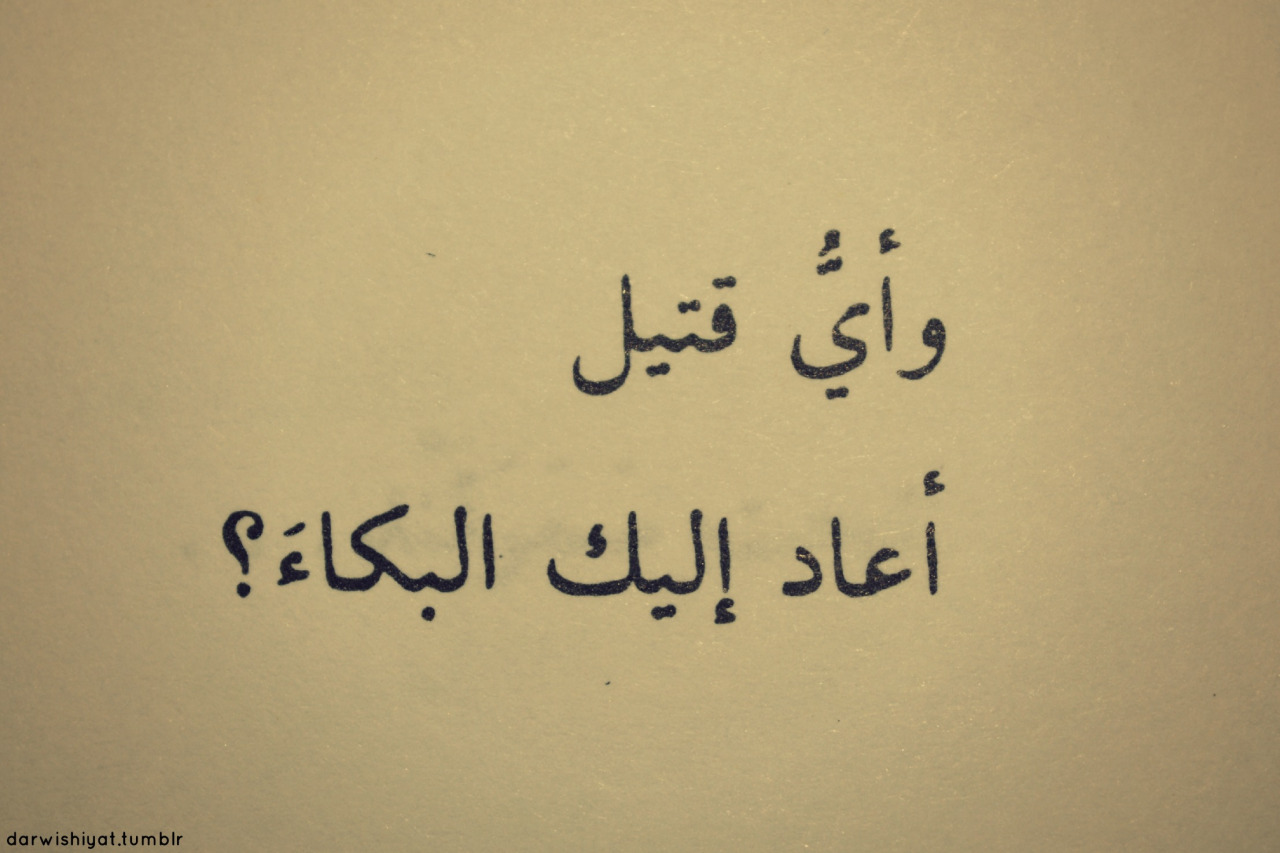 وأيُّ قتيل
أعاد إليك البكاءَ؟
darwishiyat.tumblr